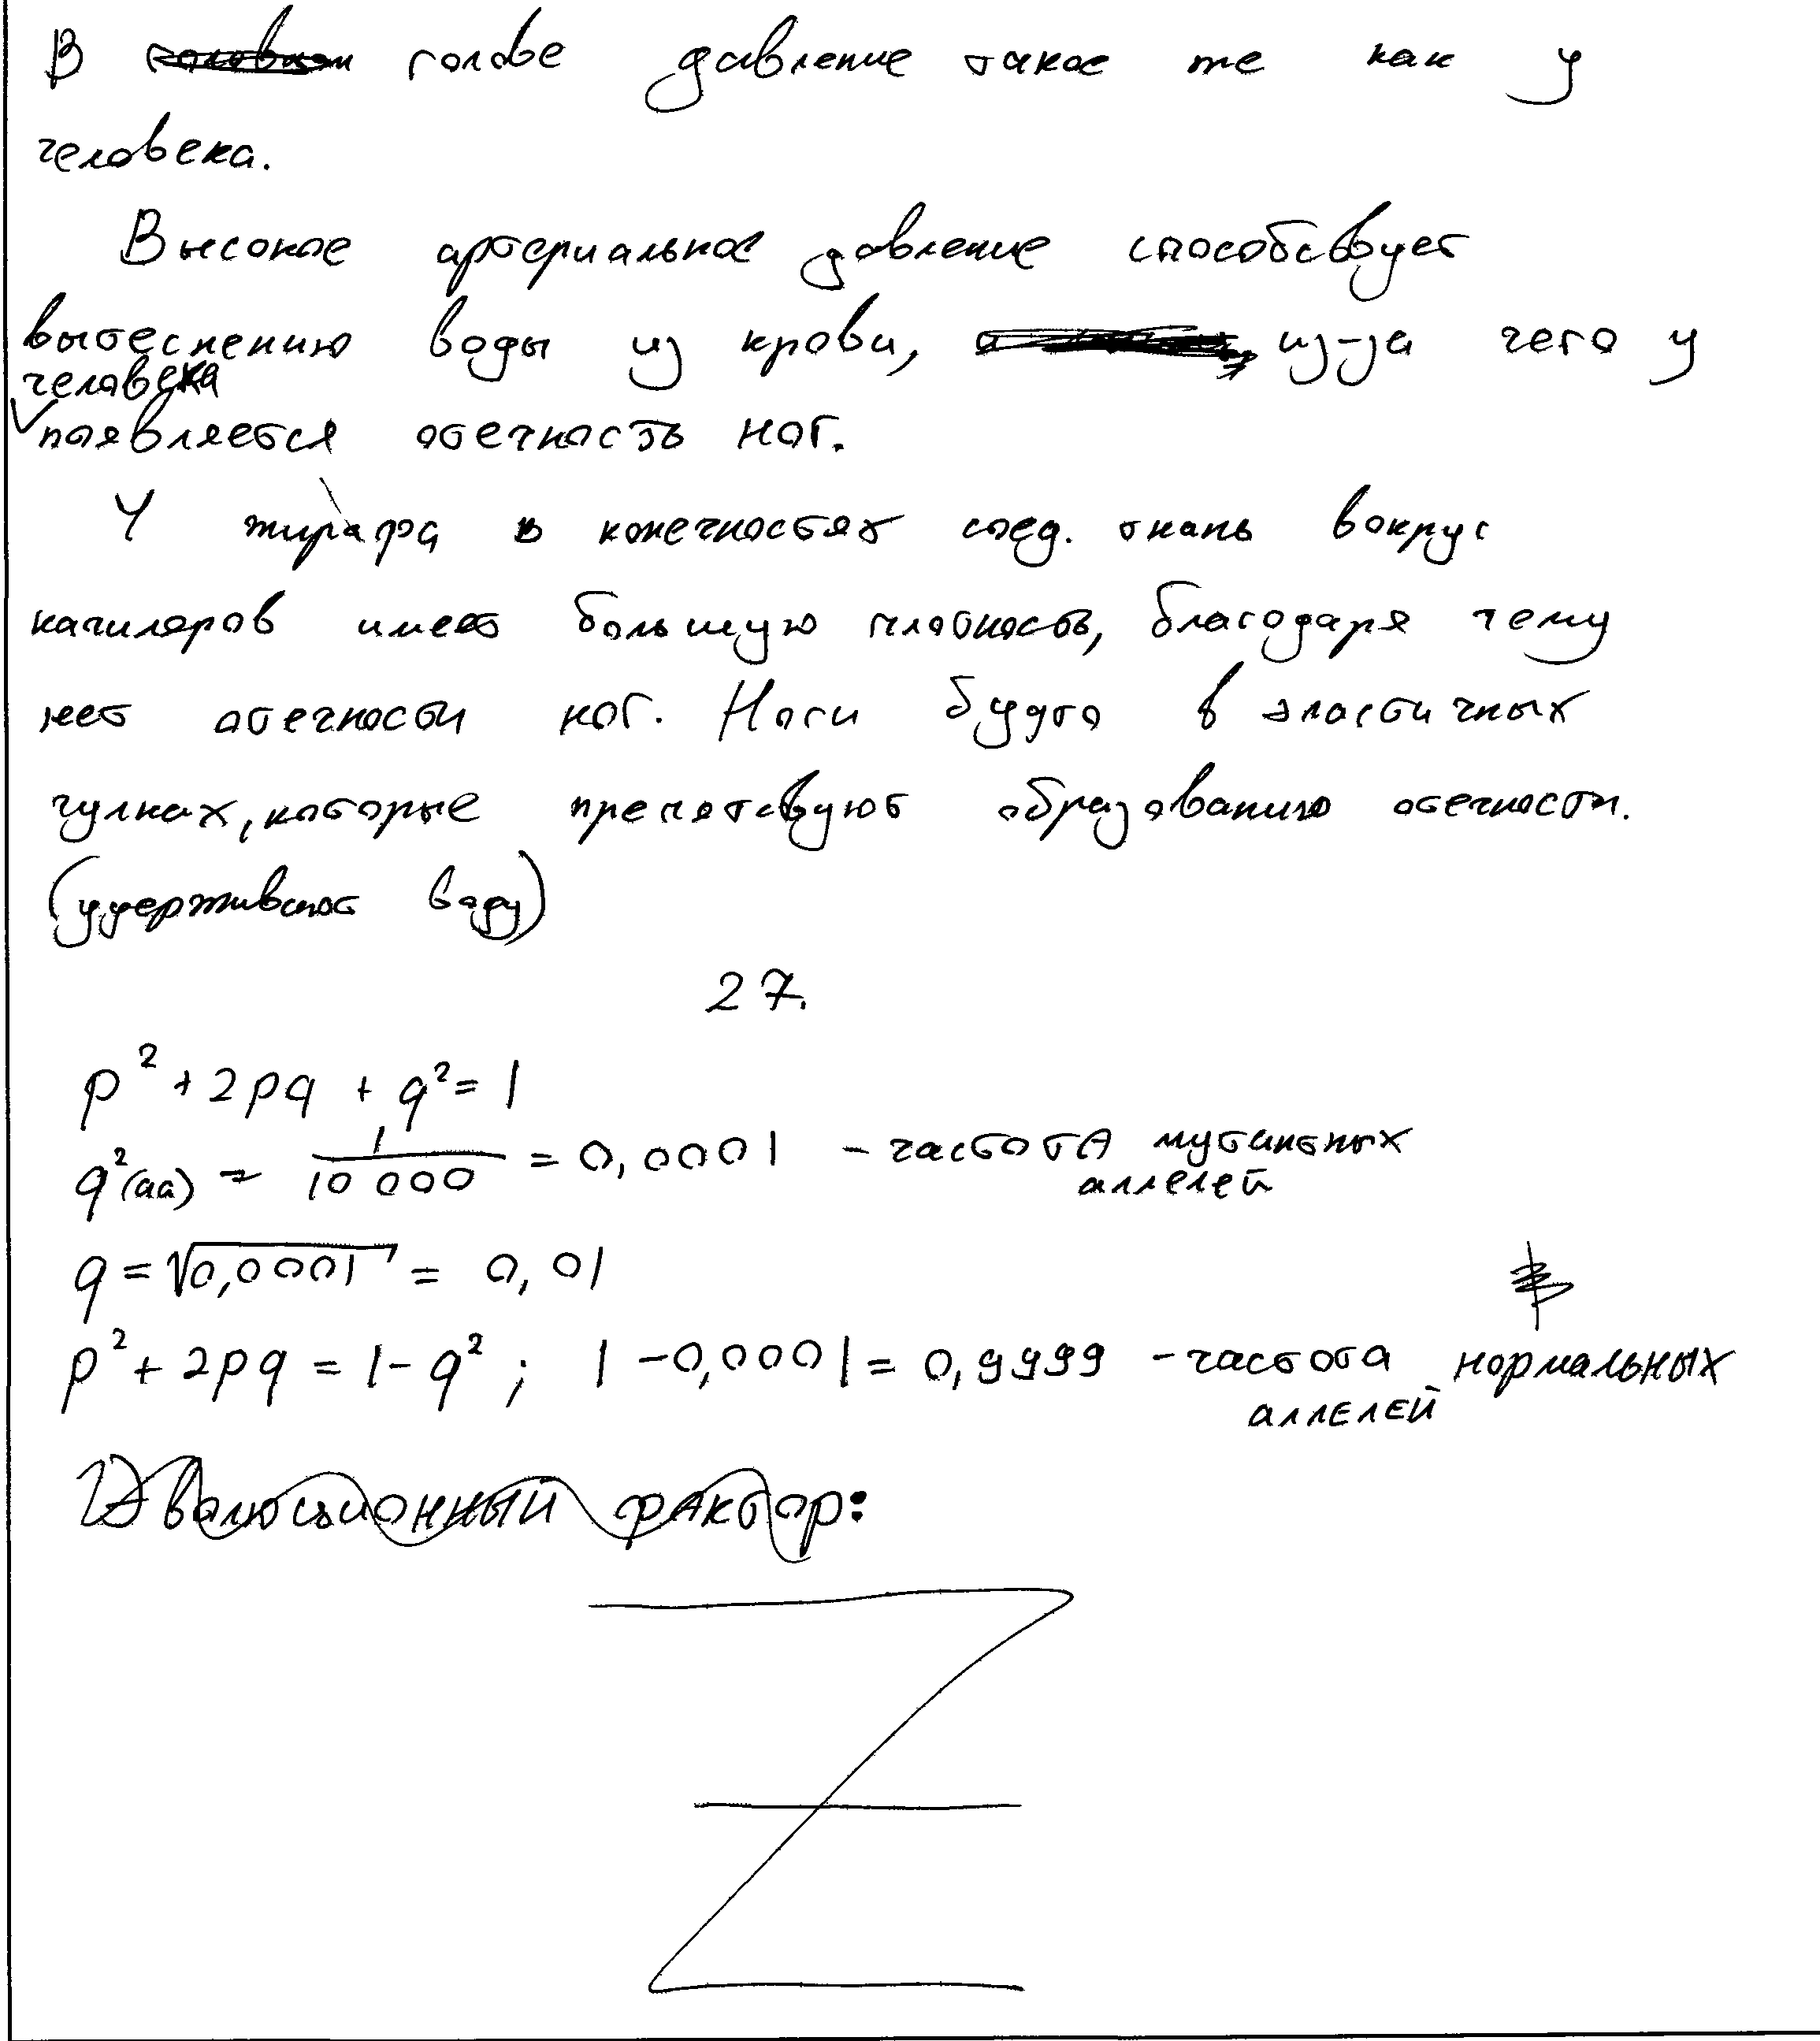 В голове давление такое же как у
человека.
Высокое артериальное давление способствует
вытеснению воды из крови, из-за чего у
человека
появляется отечность ног.
У жирафа в конечностях соед. ткань вокруг
капиляров имеет большую плотность, благодаря чему
нет отечности ног. Ноги будто в эластичных
чулках, которые препятствуют образованию отечности.
(удерживают воду)
27.
p² + 2pq + q² = 1
q²(aa) = 1/10 000 = 0,0001 - частота мутантных
аллелей
q = √0,0001 = 0,01
p² + 2pq = 1 - q² ; 1 - 0,0001 = 0,9999 - частота нормальных
аллелей
Эволюционный фактор:
Z